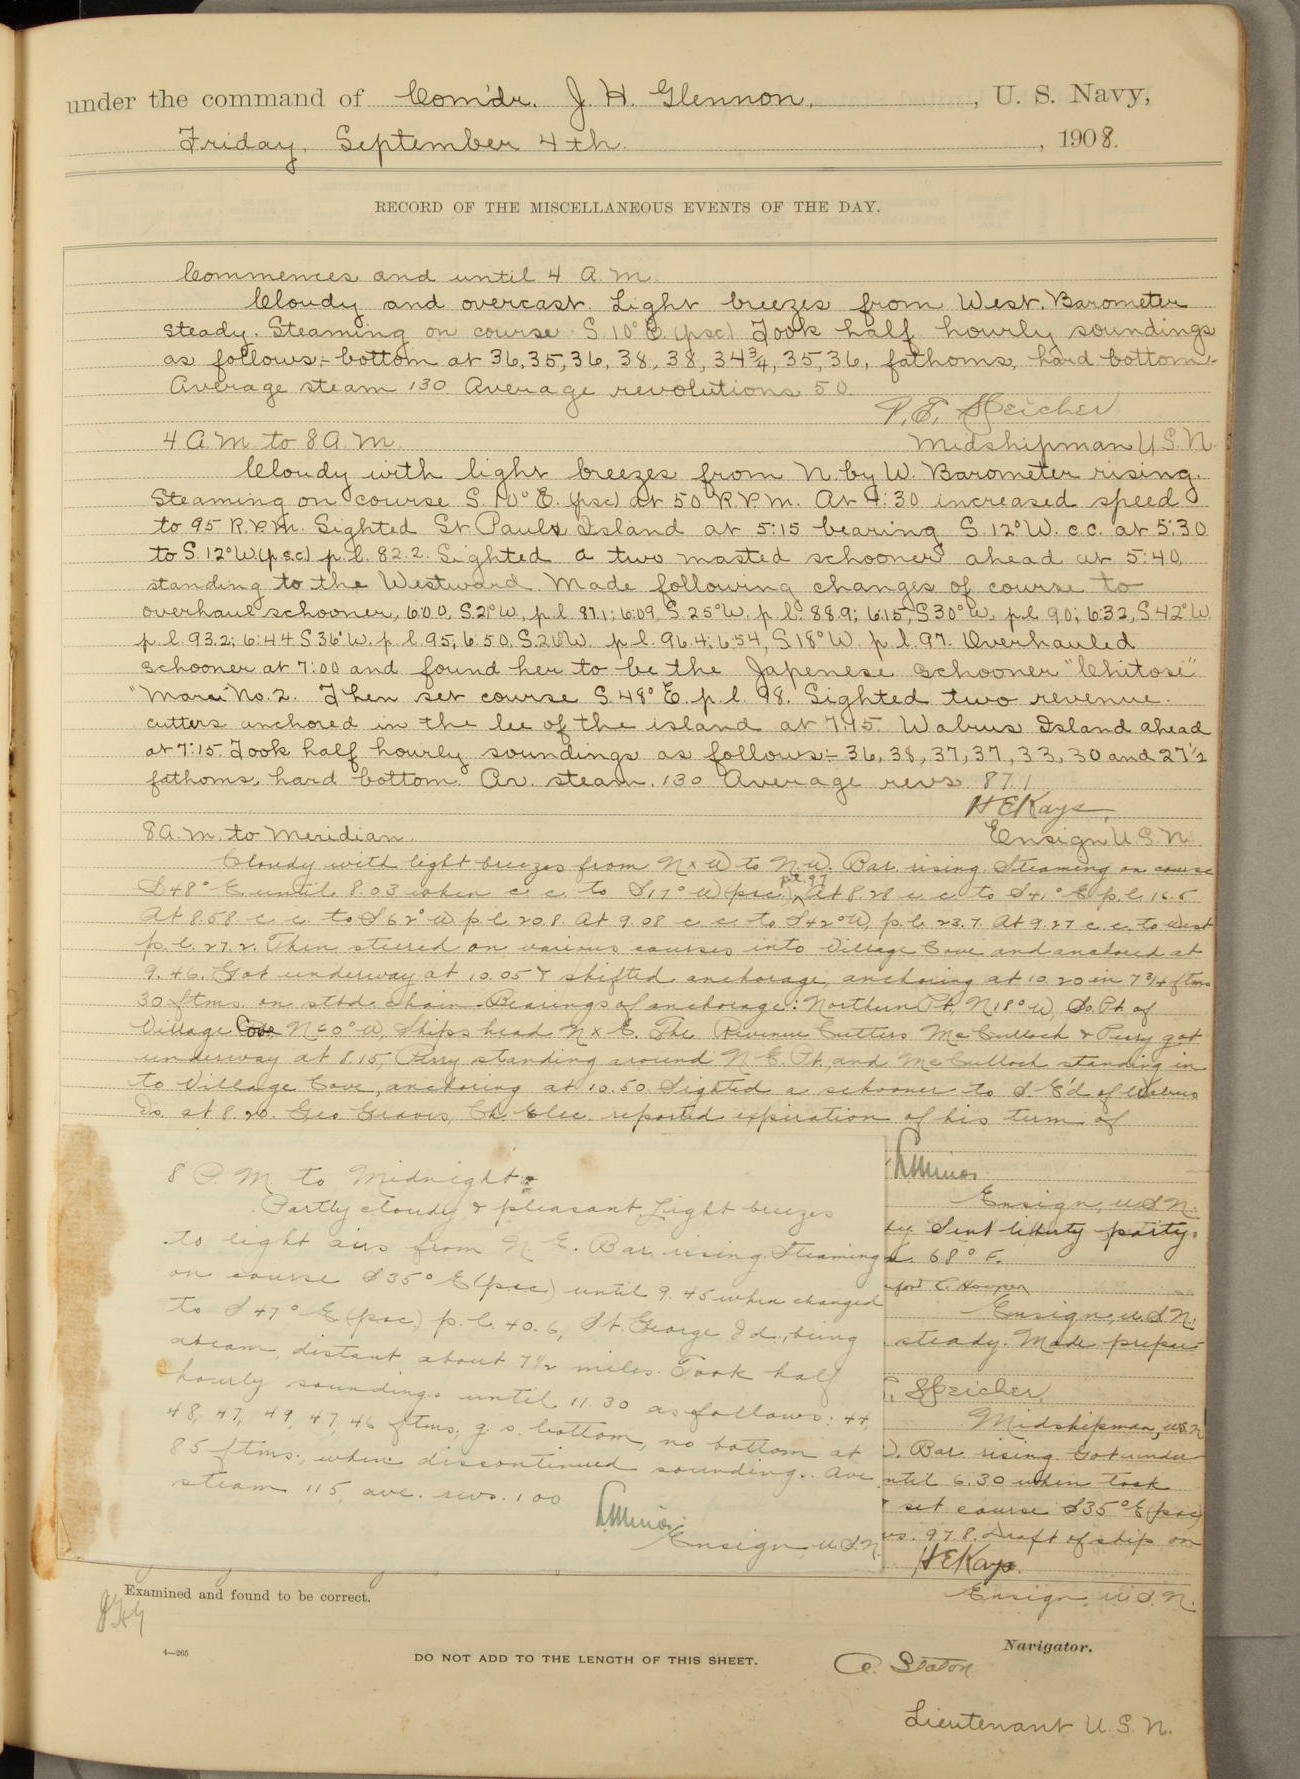 under the command of Com'dr. J. H. Glennon, , U. S. Navy,
Friday, September 4th. , 1908.
RECORD OF THE MISCELLANEOUS EVENTS OF THE DAY.
Commences and until 4 A.M.
Cloudy and overcast. Light breezes from West. Barometer
steady. Steaming on course S. 10° E. (psc) Took half hourly soundings
as follows:- bottom at 36, 35, 36, 38, 38, 34¾, 35, 36, fathoms, hard bottom.
Average steam 130 Average revolutions 50.
P. E. Speicher
Midshipman U.S.N.
4 A.M. to 8 A.M.
Cloudy with light breezes from N. by W. Barometer rising.
Steaming on course S. 10° E. (psc) at 50 R.P.M. At 4:30 increased speed
to 95 R.P.M. Sighted St. Pauls Island at 5:15 bearing S. 12° W. c.c. at 5:30
to S. 12° W. (p.s.c) p.l. 82.2. Sighted a two masted schooner ahead at 5:40,
standing to the Westward. Made following changes of course to
overhaul schooner, 6:00, S.21°W., p.l. 87.1; 6:09, S.25°W. p.l. 88.9; 6:15, S30°W. p.l. 90; 6:32, S42°W.
p.l. 93.2; 6:44 S36°W. p.l. 95; 6:50, S.26°W. p.l. 96.4; 6:54, S18°W. p.l. 97. Overhauled
schooner at 7:00 and found her to be the Japenese schooner "Chitose"
"Maru" No. 2. Then set course S.48° E. p.l. 98. Sighted two revenue
cutters anchored in the lee of the island at 7:15. Walrus Island ahead
at 7:15. Took half hourly soundings as follows:- 36, 38, 37, 37, 33, 30 and 27½
fathoms, hard bottom. Av. steam. 130 Average revs 87.1
H E Kays,
Ensign U.S.N.
8 A.M. to Meridian.
Cloudy with light breezes from N x W to N.W. Bar. rising. Steaming on course
S 48° E until 8.03 when c. c. to S 17° W (psc), p.l. 97 At 8.28 c. c. to S 41° E p.l. 16.5
At 8.58 c. c. to S 62° W p.l. 20.8. At 9.08 c. c. to S 42° W, p.l. 23.7. At 9.27 c. c. to West
p.l. 27.2. Then steered on various courses into Village Cove and anchored at
9.46. Got underway at 10.05 & shifted anchorage, anchoring at 10.20 in 7¾ ftms
30 ftms. on stbd. chain. Bearings of anchorage: Northern Pt. N 18° W, So. Pt. of
Village Cove N 50° W, Ships head N x E. The Revenue Cutters McCulloch & Perry got
underway at 8.15, Perry standing around N. E. Pt., and McCulloch standing in
to Village Cove, anchoring at 10.50. Sighted a schooner to S. E'd of Walrus
Is. at 8.20. Geo Graves, Ch. Elec. reported expiration of his term of
Ensign, U.S.N.
Sent liberty party.
68° F.
Ensign, U.S.N.
steady. Made prepar-
Speicher,
Midshipman, U.S.N
Bar. rising. Got under-
until 6.30 when took
set course S35° E (psc)
97.8. Draft of ship on
H E Kays.
Ensign, U.S.N.
8 P.M. to Midnight:
Partly cloudy & pleasant. Light breezes
to light airs from N. E. Bar. rising. Steaming
on course S 35° E (psc) until 9.45 when changed
to S 47° E (psc) p.l. 40.6, St. George Id., being
abeam, distant about 7½ miles. Took half
hourly soundings until 11.30 as follows: 44,
48, 47, 49, 47, 46 ftms, g. s. bottom, no bottom at
85 ftms., when discontinued sounding. Ave
steam 115, ave. revs. 100
Ensign U.S.N.
Examined and found to be correct.
4—265
DO NOT ADD TO THE LENGTH OF THIS SHEET.
Navigator.
A. Staton
Lieutenant U.S.N.